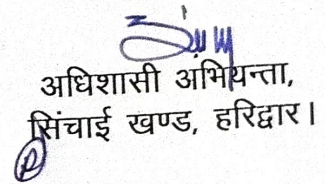 अधिशासी अभियन्ता,
सिंचाई खण्ड, हरिद्वार।